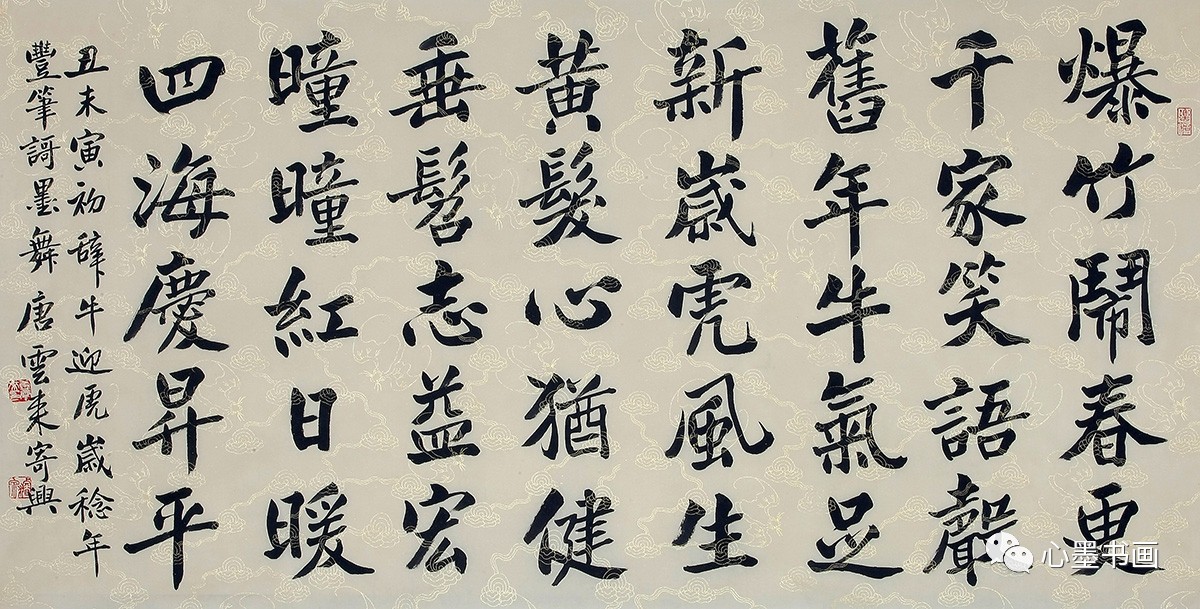 爆竹鬧春更
千家笑語聲
舊年牛氣足
新歲虎風生
黄髮心猶健
垂髫志益宏
曈曈紅日暖
四海慶昇平
丑末寅初辭牛迎虎歲稔年
豐筆謌墨舞唐雲来寄興
心墨书画